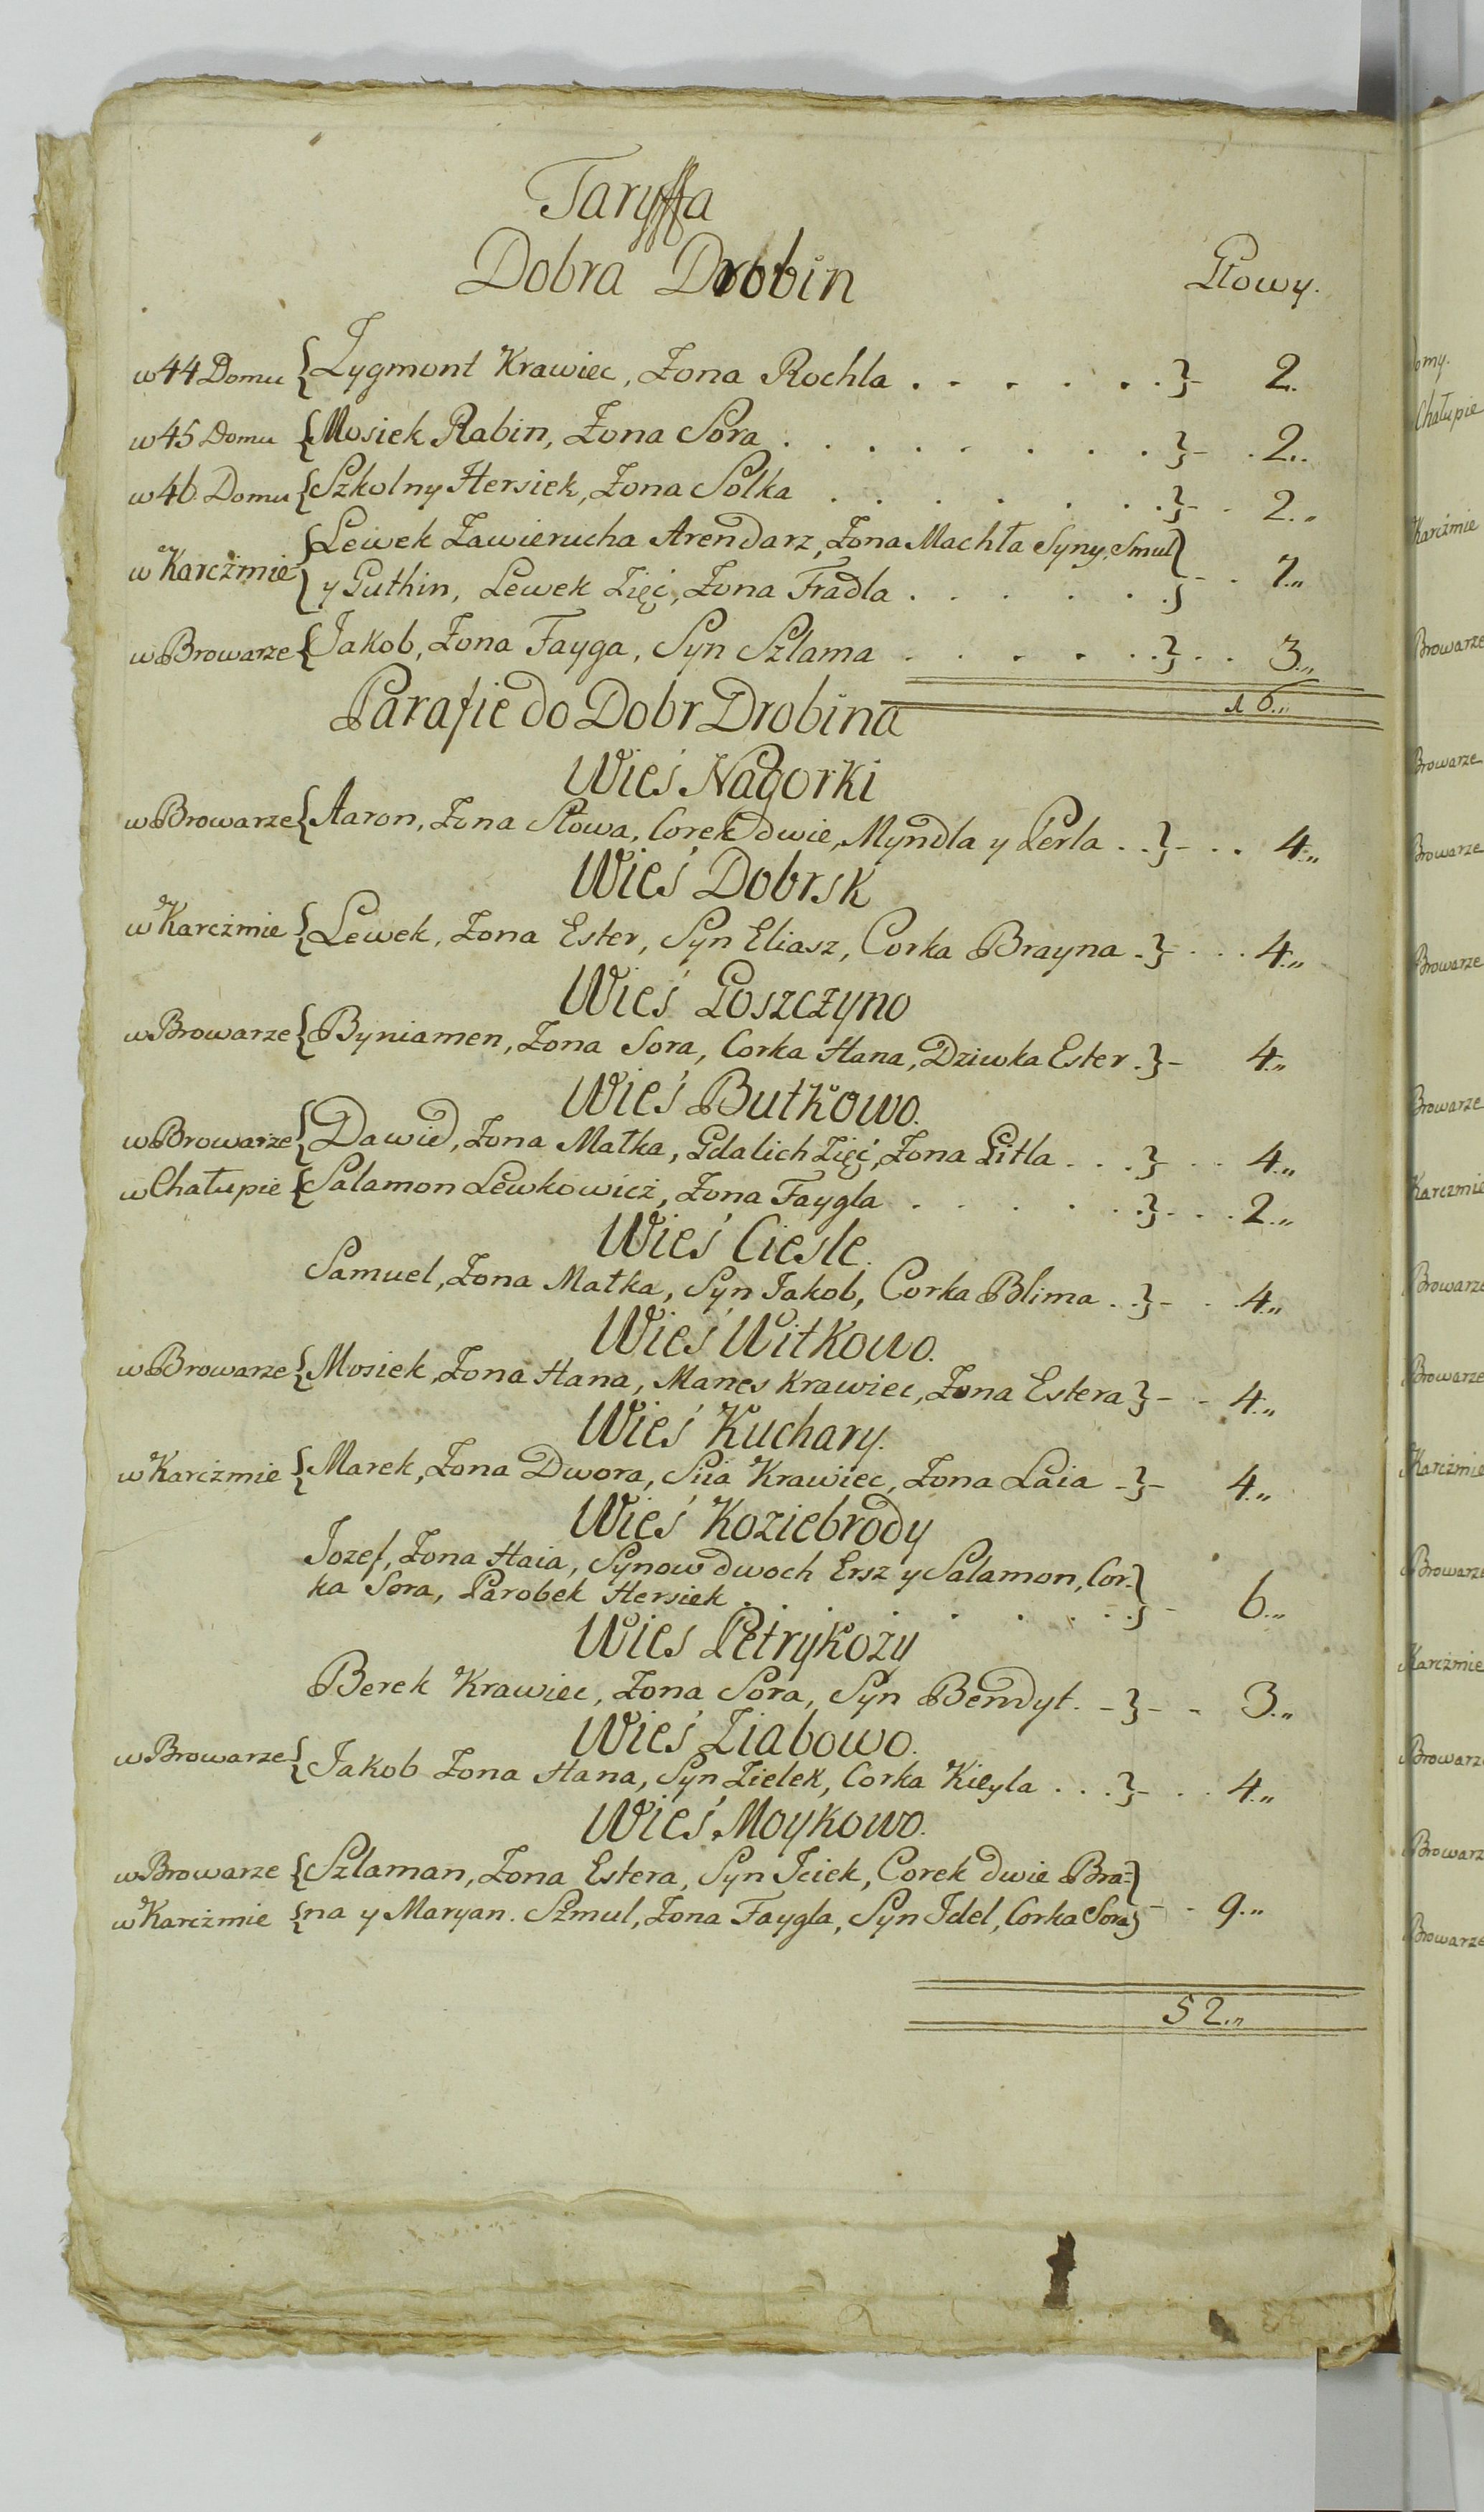 Taryffa
Dobra Drobin
Głowy.
w 44 Domu { Zygmont Krawiec, Żona Rochla . . . . . . } - 2.
w 45 Domu { Mosiek Rabin, Żona Sora . . . . . . . . } - . 2..
w 46 Domu { Szkolny Hersiek, Żona Solka . . . . . . . } - . 2.„
w Karczmie { Lewek Zawierucha Arendarz, Żona Machła Syny, Smul }
y Guthin, Lewek Zięć, Żona Fradla . . . . . . } - . 7.„
w Browarze { Jakob, Żona Fayga, Syn Szlama . . . . . . } . . 3.„
16.„
Parafie do Dobr Drobina
Wieś Nagorki
w Browarze { Aaron, Żona Słowa, Corek dwie, Myndla y Perla . . } - . . 4.„
Wieś Dobrsk
w Karczmie { Lewek, Żona Ester, Syn Eliasz, Corka Brayna . } - . . . 4.„
Wieś Goszczyno
w Browarze { Byniamen, Żona Sora, Corka Hana, Dziwka Ester . } - 4.„
Wieś Butkowo.
w Browarze { Dawid, Żona Małka, Gdalich Zięć, Żona Gitla . . . } - . . 4.„
w Chałupie { Salamon Lewkowicz, Żona Faygla . . . . . . } - . . . 2.„
Wieś Ciesle.
Samuel, Żona Małka, Syn Jakob, Corka Blima . . } - . . 4.„
Wieś Witkowo.
w Browarze { Mosiek, Żona Hana, Manes Krawiec, Żona Estera } - - 4.„
Wieś Kuchary.
w Karczmie { Marek, Żona Dwora, Siia Krawiec, Żona Laia - } - 4.„
Wieś Koziebrody
Jozef, Żona Haia, Synow dwoch Ersz y Salamon, Cor- }
ka Sora, Parobek Hersiek . . . . . . . } - 6.„
Wies Petrykozy
Berek Krawiec, Żona Sora, Syn Bendyt. - } - - 3.„
Wieś Ziabowo.
w Browarze { Jakob Żona Hana, Syn Zielek, Corka Kieyla . . . } - . . 4.„
Wieś Moykowo.
w Browarze { Szlaman, Żona Estera, Syn Iciek, Corek dwie Bra- }
w Karczmie { na y Maryan. Szmul, Żona Faygla, Syn Idel, Corka Sora } - - 9.„
52.„
Chałupie
Karczmie
Browarze
Browarze
Browarze
Browarze
Browarze
Karczmie
Browarze
Browarze
Karczmie
Browarze
Karczmie
Browarze
Browarz
Browarze